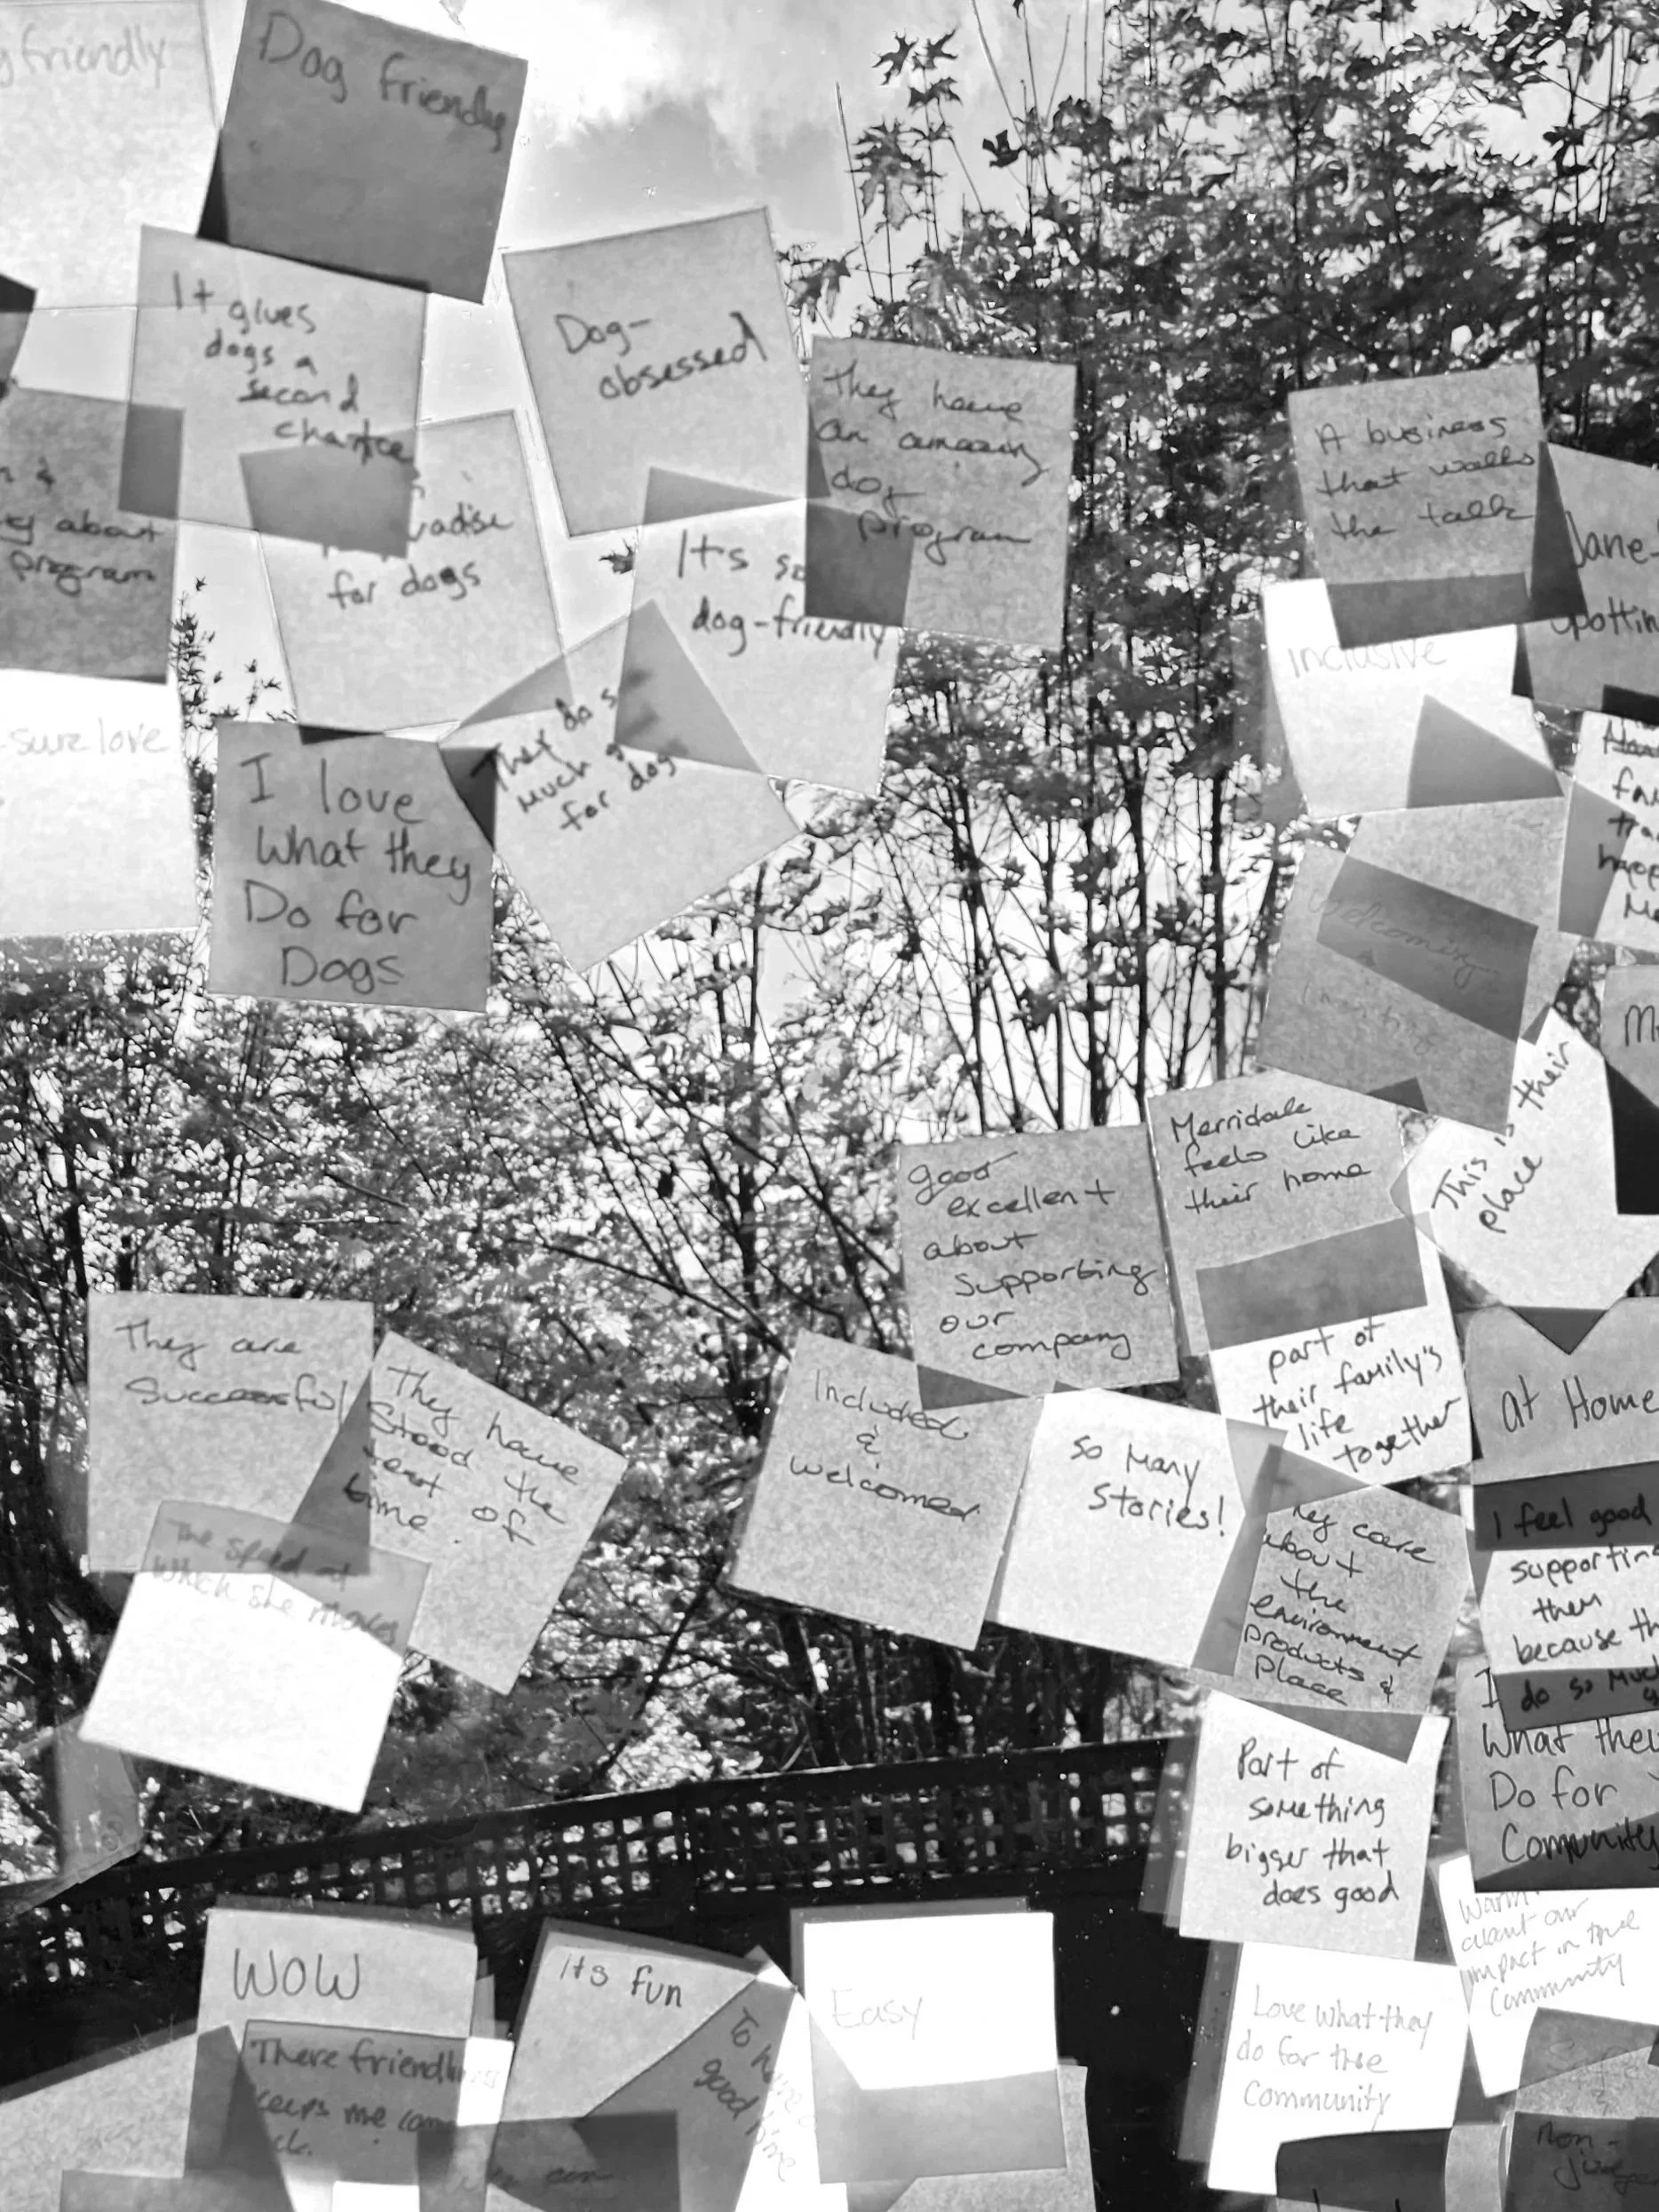 friendly
Dog friendly
It gives
dogs a
second
chance
Dog-
obsessed
They have
an amazing
dog
program
A business
that walks
the talk
Jane
about
program
for dogs
It's so
dog-friendly
inclusive
sure love
I love
What they
Do for
Dogs
They do so
much
for dogs
Welcoming
This is their
place
Merridale
feels like
their home
good
excellent
about
supporting
our
company
part of
their family's
life
together
at Home
They are
Successful
They have
Stood the
test of
time.
The speed at
which she moves
Included
&
welcomed
So Many
Stories!
care
about
the
environment
products &
Place
I feel good
supporting
them
because
do so much
I
What they
Do for
Community
Part of
something
bigger that
does good
Warm
about our
impact in the
Community
Love what they
do for the
Community
WOW
There friendliness
keeps me
its fun
To have a
good time
Easy
Non-